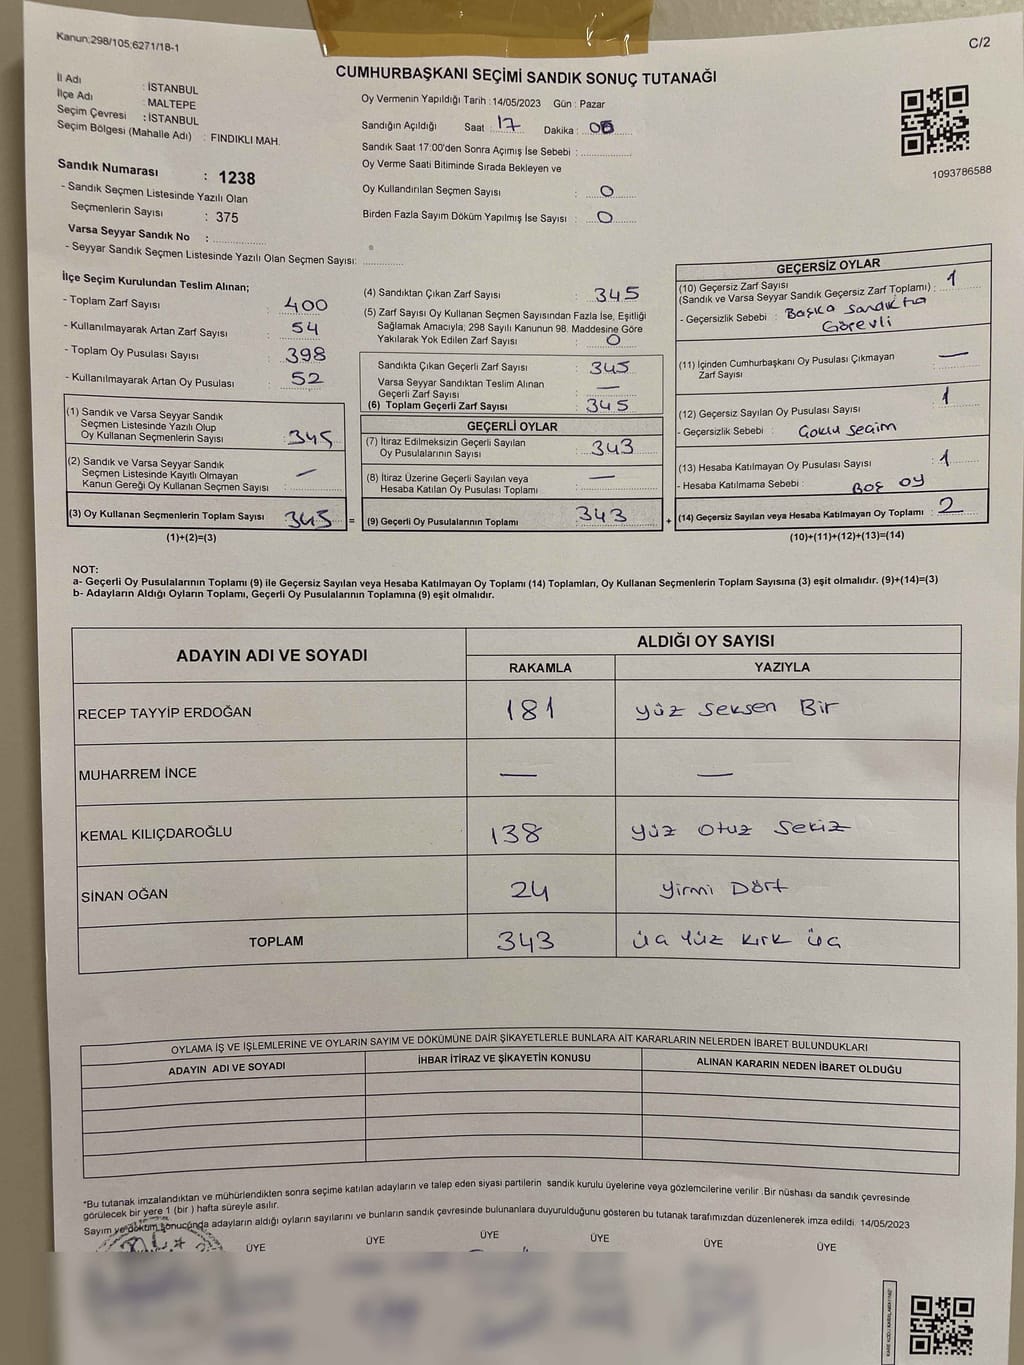 Kanun;298/105;6271/18-1
C/2
CUMHURBAŞKANI SEÇİMİ SANDIK SONUÇ TUTANAĞI
İl Adı : İSTANBUL
İlçe Adı : MALTEPE
Seçim Çevresi : İSTANBUL
Seçim Bölgesi (Mahalle Adı) : FINDIKLI MAH.
Oy Vermenin Yapıldığı Tarih : 14/05/2023 Gün : Pazar
Sandığın Açıldığı Saat : 17 Dakika :
Sandık Saat 17:00'den Sonra Açımış İse Sebebi :
Oy Verme Saati Bitiminde Sırada Bekleyen ve
Oy Kullandırılan Seçmen Sayısı : 0
Birden Fazla Sayım Döküm Yapılmış İse Sayısı : 0
1093786588
Sandık Numarası : 1238
- Sandık Seçmen Listesinde Yazılı Olan
Seçmenlerin Sayısı : 375
Varsa Seyyar Sandık No :
- Seyyar Sandık Seçmen Listesinde Yazılı Olan Seçmen Sayısı:
İlçe Seçim Kurulundan Teslim Alınan;
- Toplam Zarf Sayısı : 400
- Kullanılmayarak Artan Zarf Sayısı : 54
- Toplam Oy Pusulası Sayısı : 398
- Kullanılmayarak Artan Oy Pusulası : 52
(1) Sandık ve Varsa Seyyar Sandık
Seçmen Listesinde Yazılı Olup
Oy Kullanan Seçmenlerin Sayısı : 345
(2) Sandık ve Varsa Seyyar Sandık
Seçmen Listesinde Kayıtlı Olmayan
Kanun Gereği Oy Kullanan Seçmen Sayısı : —
(3) Oy Kullanan Seçmenlerin Toplam Sayısı : 345 =
(1)+(2)=(3)
(4) Sandıktan Çıkan Zarf Sayısı : 345
(5) Zarf Sayısı Oy Kullanan Seçmen Sayısından Fazla İse, Eşitliği
Sağlamak Amacıyla; 298 Sayılı Kanunun 98. Maddesine Göre
Yakılarak Yok Edilen Zarf Sayısı : 0
Sandıkta Çıkan Geçerli Zarf Sayısı : 345
Varsa Seyyar Sandıktan Teslim Alınan
Geçerli Zarf Sayısı : —
(6) Toplam Geçerli Zarf Sayısı : 345
GEÇERLİ OYLAR
(7) İtiraz Edilmeksizin Geçerli Sayılan
Oy Pusulalarının Sayısı : 343
(8) İtiraz Üzerine Geçerli Sayılan veya
Hesaba Katılan Oy Pusulası Toplamı : —
(9) Geçerli Oy Pusulalarının Toplamı : 343 +
GEÇERSİZ OYLAR
(10) Geçersiz Zarf Sayısı
(Sandık ve Varsa Seyyar Sandık Geçersiz Zarf Toplamı) : 1
- Geçersizlik Sebebi : Başka sandıkta
Görevli
(11) İçinden Cumhurbaşkanı Oy Pusulası Çıkmayan
Zarf Sayısı : —
(12) Geçersiz Sayılan Oy Pusulası Sayısı : 1
- Geçersizlik Sebebi : Çoklu seçim
(13) Hesaba Katılmayan Oy Pusulası Sayısı : 1
- Hesaba Katılmama Sebebi : BOŞ OY
(14) Geçersiz Sayılan veya Hesaba Katılmayan Oy Toplamı : 2
(10)+(11)+(12)+(13)=(14)
NOT:
a- Geçerli Oy Pusulalarının Toplamı (9) ile Geçersiz Sayılan veya Hesaba Katılmayan Oy Toplamı (14) Toplamları, Oy Kullanan Seçmenlerin Toplam Sayısına (3) eşit olmalıdır. (9)+(14)=(3)
b- Adayların Aldığı Oyların Toplamı, Geçerli Oy Pusulalarının Toplamına (9) eşit olmalıdır.
ADAYIN ADI VE SOYADI
ALDIĞI OY SAYISI
RAKAMLA YAZIYLA
RECEP TAYYİP ERDOĞAN 181 yüz seksen Bir
MUHARREM İNCE — —
KEMAL KILIÇDAROĞLU 138 yüz otuz sekiz
SİNAN OĞAN 24 yirmi Dört
TOPLAM 343 üç yüz kırk üç
OYLAMA İŞ VE İŞLEMLERİNE VE OYLARIN SAYIM VE DÖKÜMÜNE DAİR ŞİKAYETLERLE BUNLARA AİT KARARLARIN NELERDEN İBARET BULUNDUKLARI
ADAYIN ADI VE SOYADI İHBAR İTİRAZ VE ŞİKAYETİN KONUSU ALINAN KARARIN NEDEN İBARET OLDUĞU
*Bu tutanak imzalandıktan ve mühürlendikten sonra seçime katılan adayların ve talep eden siyasi partilerin sandık kurulu üyelerine veya gözlemcilerine verilir .Bir nüshası da sandık çevresinde
görülecek bir yere 1 (bir ) hafta süreyle asılır.
Sayım ve döküm sonucunda adayların aldığı oyların sayılarını ve bunların sandık çevresinde bulunanlara duyurulduğunu gösteren bu tutanak tarafımızdan düzenlenerek imza edildi. 14/05/2023
ÜYE ÜYE ÜYE ÜYE ÜYE ÜYE